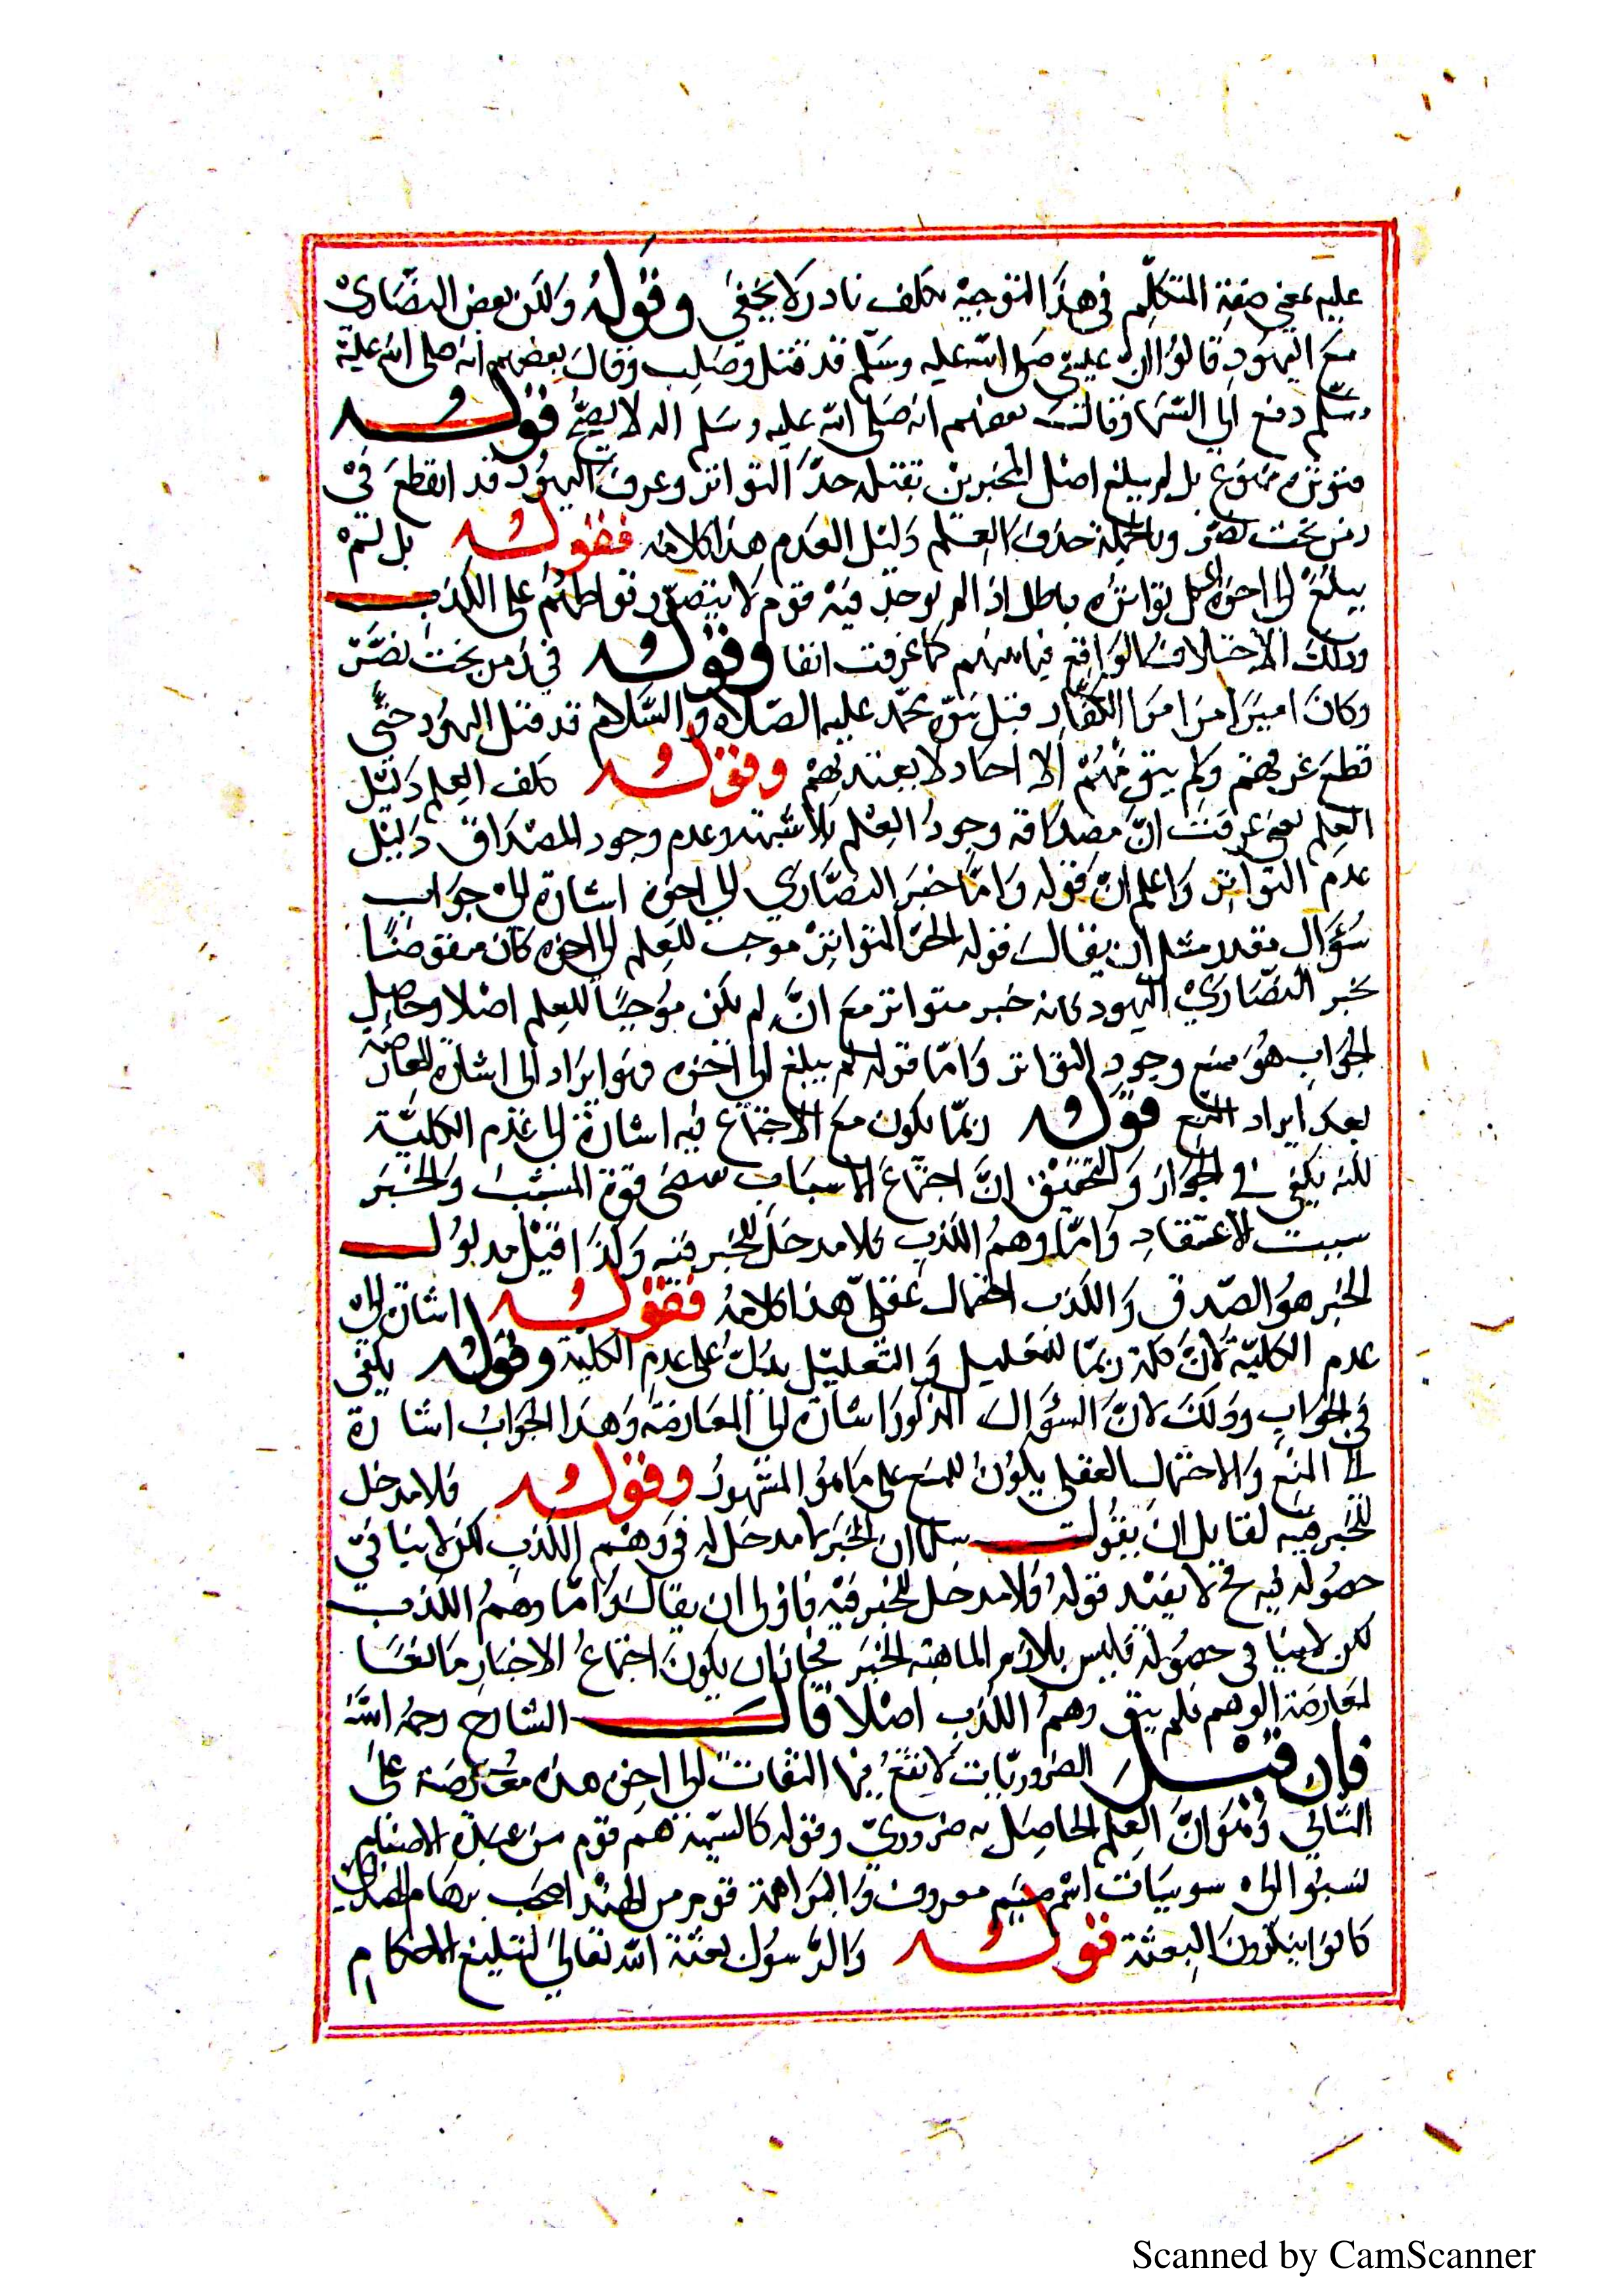 عليه بمعنى صفة المتكلم في هذا التوجيه تكلف نادر لا يخفى وقوله ولكن بعض النصارى
مع اليهود قالوا ان عيسى صلى الله عليه وسلم قد قتل وصلب وقال بعضهم انه صلى الله عليه
وسلم دفع الى السما وقالت بعضهم انه صلى الله عليه وسلم اله لا يصح قوله
فتوتره ممنوع بل لم يبلغ اصل المخبرين بقتله حد التواتر وعرف اليهود قد انقطع في
زمن بخت نصر وبالجملة حذف العلم دليل العدم هذا كلامه فقوله بل لم
يبلغ الى اخره بل تواتره باطل اذ لم يوجد فيه قوم لا يتصور تواطئهم على الكذب
وذلك الاختلاف الواقع فيما بينهم كما عرفت انفا وقوله في زمن بخت نصر
وكان اميرا من امرا الكفار قبل نبوة محمد عليه الصلاة والسلام قد قتل اليهود حتى
قطع عرقهم ولم يبق منهم الا احاد لا يعتد بهم وقوله تخلف العلم دليل
العلم يعني عرفت ان مصداقه وجود العلم بلا شبهة وعدم وجود المصداق دليل
عدم التواتر واعلم ان قوله واما خبر النصارى الى اخره اشارة الى جواب
سؤال مقدر مثل ان يقال قوله الخبر المتواتر موجب للعلم الى اخره كان منقوضا
بخبر النصارى اليهود بانه خبر متواتر مع انه لم يكن موجبا للعلم اصلا وحاصل
الجواب هو منع وجود التواتر واما قوله لم يبلغ الى اخره فهو ايراد الى اشارة المعارضه
بعد ايراد المنع قوله ربما يكون مع الاجتماع فيه اشارة الى عدم الكلية
لكنه يكفي في الجواز والتحقيق ان اجتماع الاسباب يقتضي قوة المسبب والخبر
سبب لاعتقاد واما وهم الكذب فلا مدخل للخبر فيه ولذا قيل مدلول
الخبر هو الصدق والكذب احتمال عقلي هذا كلامه فقوله اشارة الى
عدم الكلية لان كلمة ربما للتقليل والتقليل يدل على عدم الكلية وقوله يكفى
في الجواب وذلك لان السؤال المذكور اشارة الى المعارضة وهذا الجواب اشارة
الى المنع والاحتمال العقلي يكون للمنع على ما هو المشهور وقوله فلا مدخل
للخبر فيه لقايل ان يقول سلمنا ان الخبر لا مدخل له في وهم الكذب لكن لا ينافي
حصوله فيه فح لا يفيد قوله فلا مدخل للخبر فيه فاولى ان يقال واما وهم الكذب
لكن لا ينافى حصوله فليس بلازم الماهية الخبر فجاز ان يكون اجتماع الاخبار مانعا
لمعارضة الوهم فلم يبق وهم الكذب اصلا قال الشارح رحمه الله
فان قيل الضروريات لا تقع فيها التفات الى اخره هذه معارضة على
الثاني وهو ان العلم الحاصل به ضروري وقوله كالسمنية هم قوم من عبدة الاصنام
نسبوا الى سومنات اسم صنم معروف والبراهمة قوم من الهند اصحاب برهام
كانوا ينكرون البعثة قوله والرسول بعثة الله تعالى لتبليغ الاحكام
Scanned by CamScanner